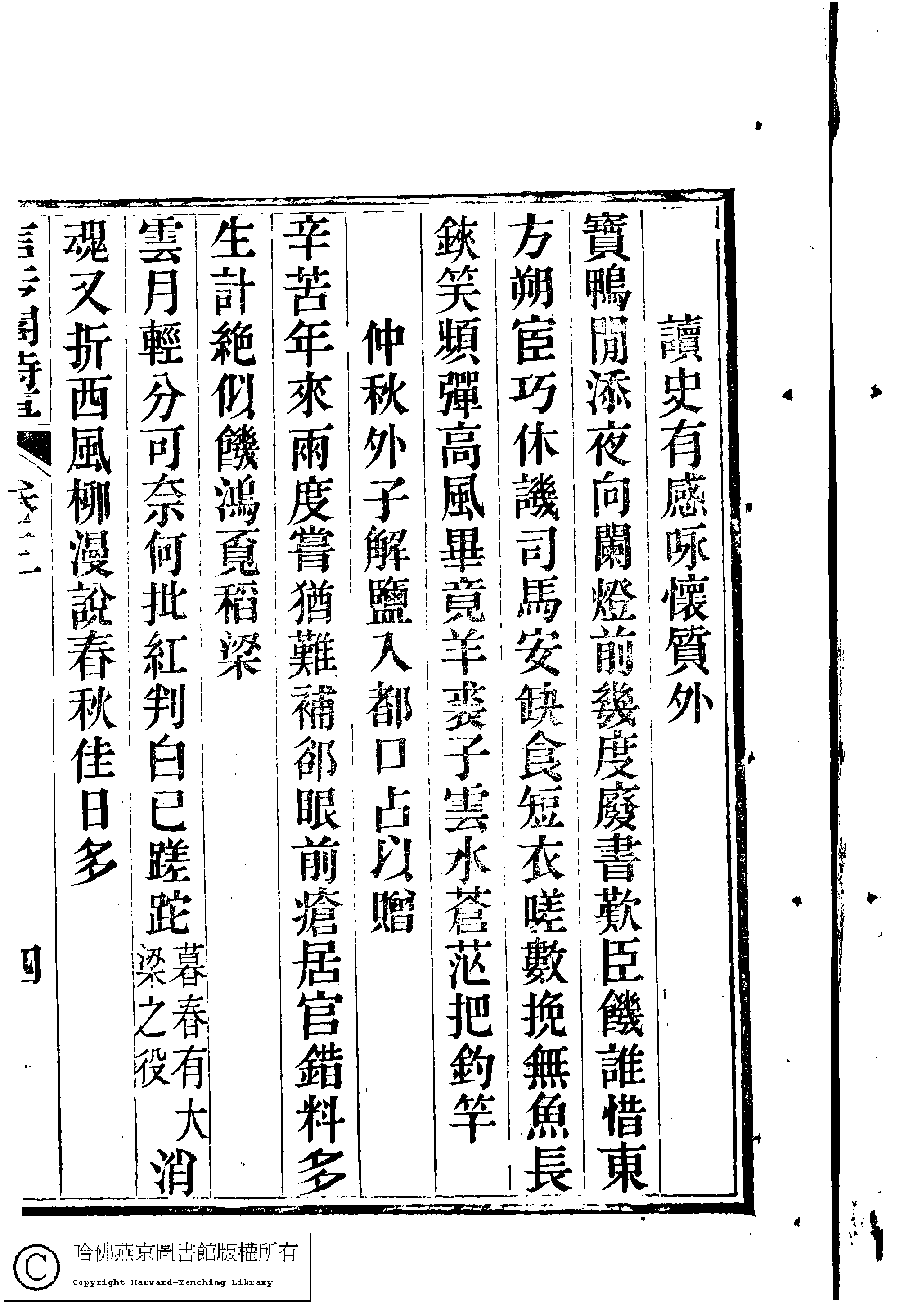 讀史有感咏懷質外
寶鴨閒添夜向闌燈前幾度廢書歎臣饑誰惜東
方朔宦巧休譏司馬安缺食短衣嗟數挽無魚長
鋏笑頻彈高風畢竟羊裘子雲水蒼茫把釣竿
仲秋外子解鹽入都口占以贈
辛苦年來兩度嘗猶難補卻眼前瘡居官錯料多
生計絶似饑鴻覓稻粱
雲月輕分可奈何批紅判白已蹉跎暮春有大梁之役消
魂又折西風柳漫說春秋佳日多
卷二
四
哈佛燕京圖書館版權所有
Copyright Harvard-Yenching Library